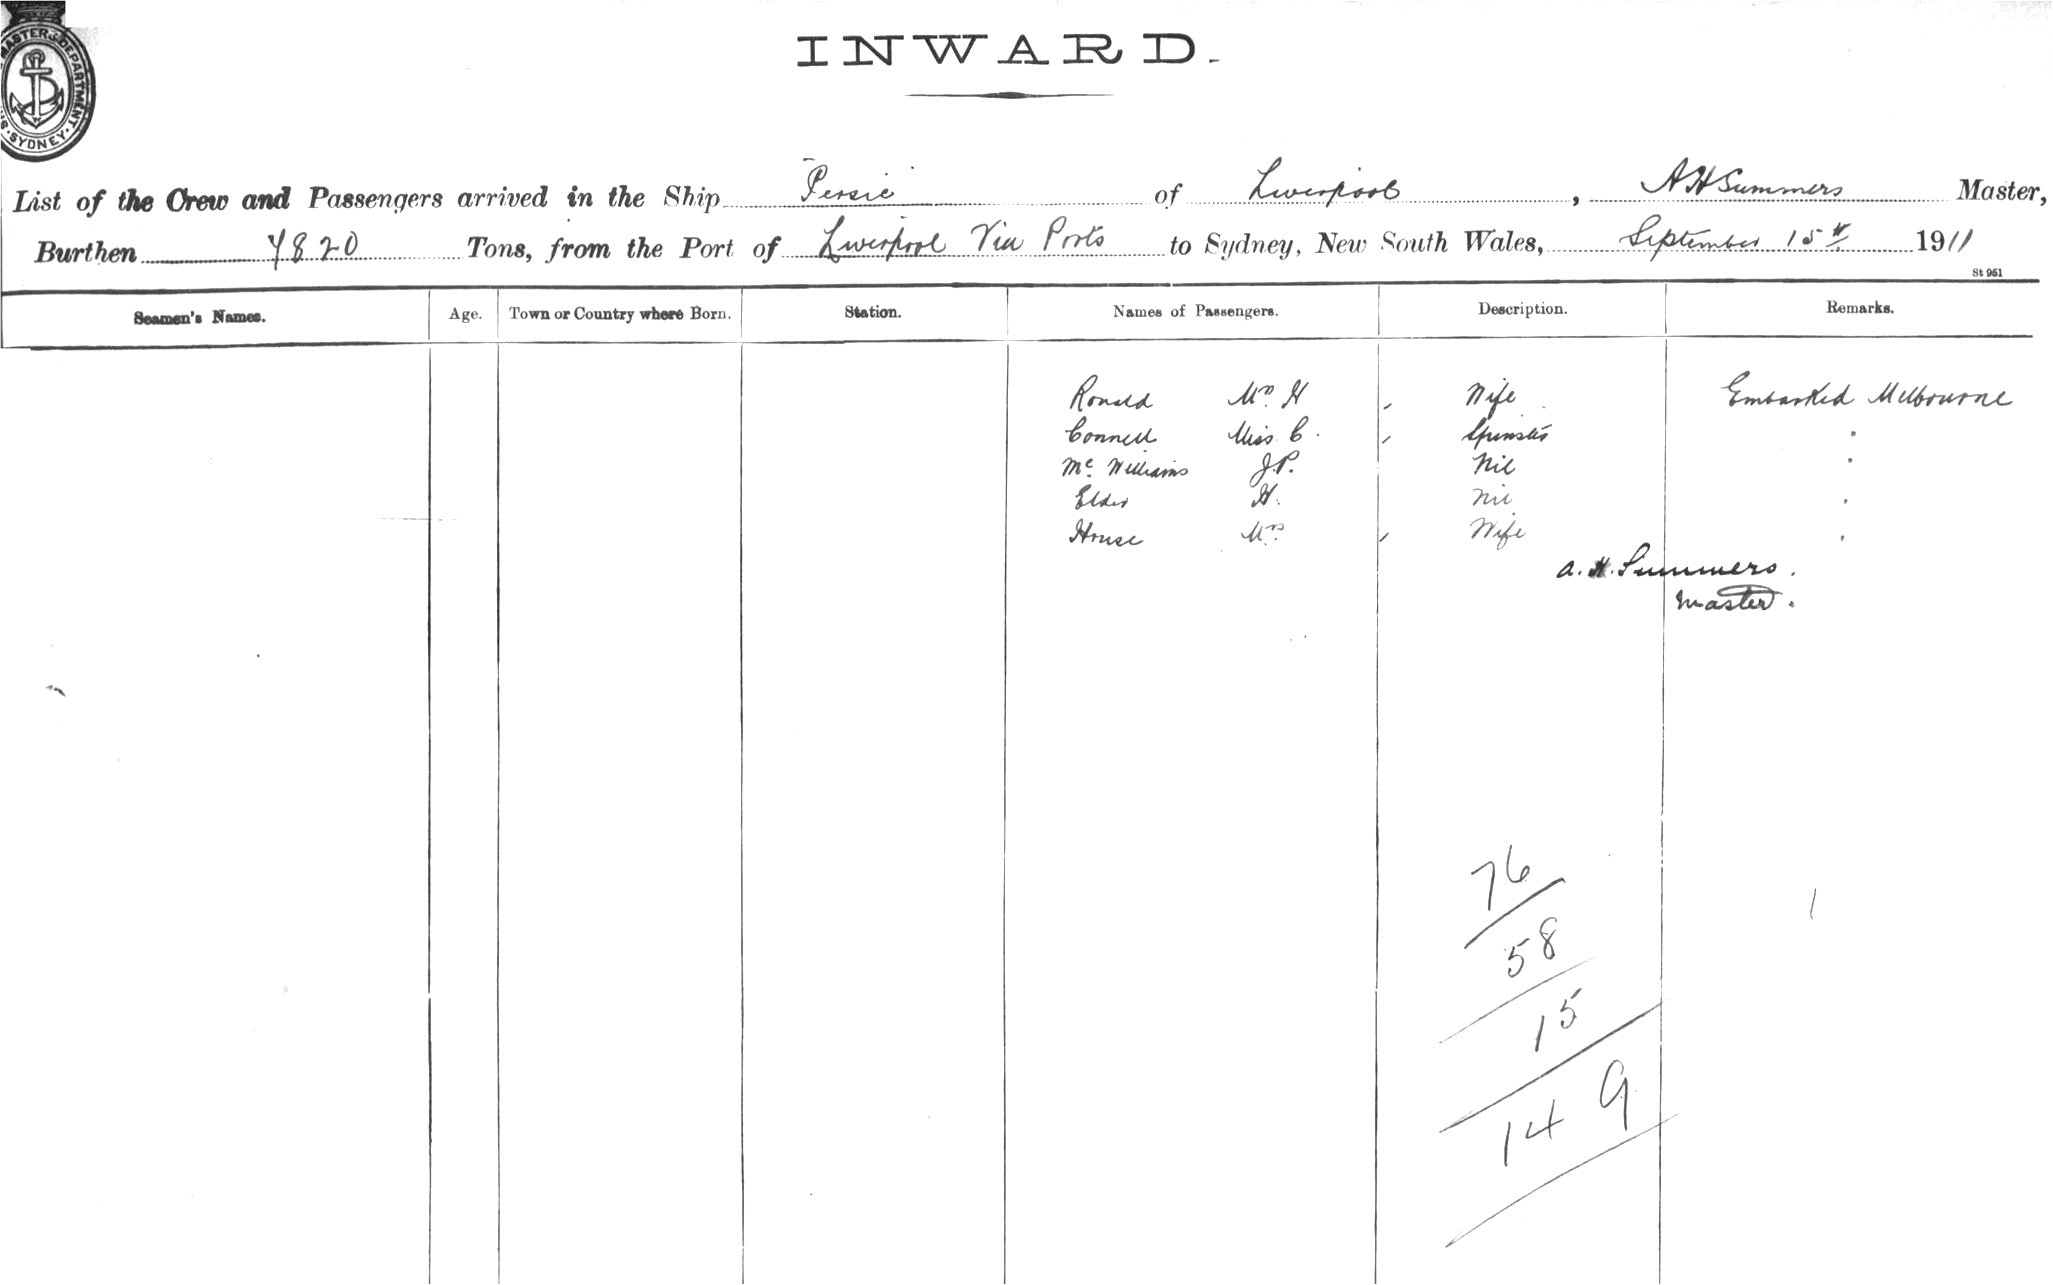 MASTER'S DEPARTMENT · SYDNEY ·
INWARD.
List of the Crew and Passengers arrived in the Ship Persic of Liverpool, A H Summers Master,
Burthen 7820 Tons, from the Port of Liverpool Via Ports to Sydney, New South Wales, September 15th 1911
St 961
Seamen's Names. Age. Town or Country where Born. Station. Names of Passengers. Description. Remarks.
Ronald Mrs H , Wife Embarked Melbourne
Connell Miss C. , Spinster "
Mc Williams J.P. Nil "
Elder H. Nil "
House Mrs , Wife "
A. H. Summers.
Master.
76
58
15
149